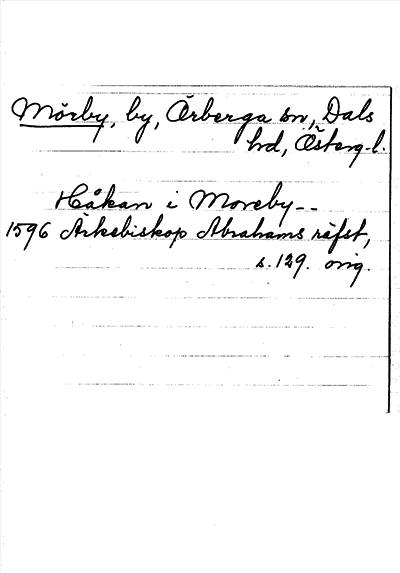 Mörby, by, Örberga sn, Dals
hd, Österg. l.
Håkan i Moreby--
1596 Ärkebiskop Abrahams räfst,
s. 129. orig.